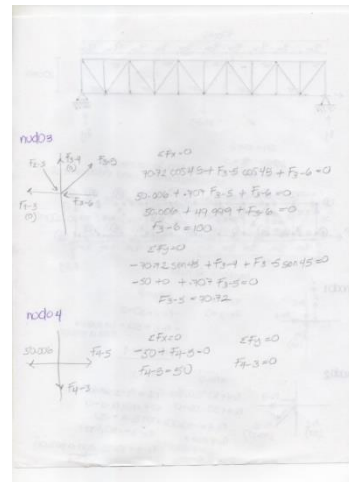 nudo 3
F2-3
F3-4
(0)
F3-5
F1-3
(T)
F3-6
ΣFx=0
70.72 cos 45 + F3-5 cos 45 + F3-6 = 0
50.006 + .707 F3-5 + F3-6 = 0
50.006 + 49.999 + F3-6 = 0
F3-6 = 100
ΣFy=0
-70.72 sen 45 + F3-4 + F3-5 sen 45 = 0
-50 + 0 + .707 F3-5 = 0
F3-5 = 70.72
nudo 4
50.006
F4-5
F4-3
ΣFx=0
-50 + F4-5 = 0
F4-5 = 50
ΣFy=0
F4-3 = 0